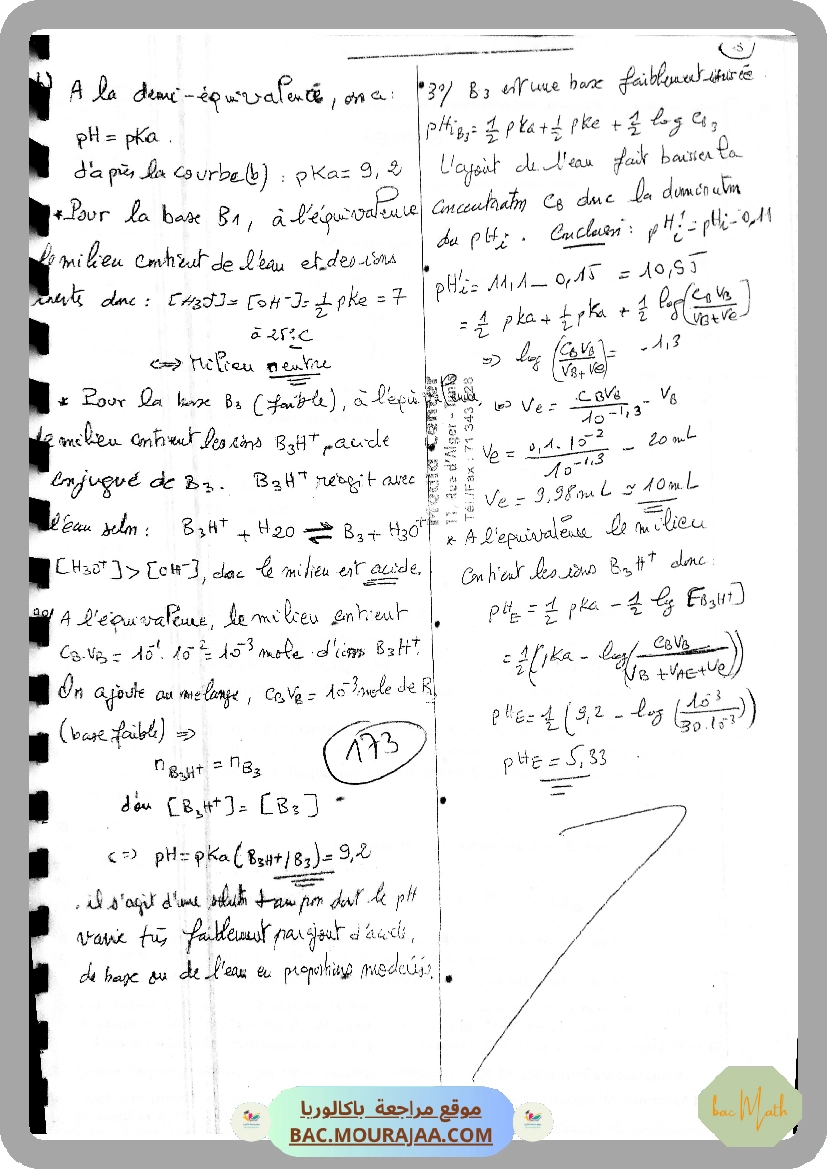 A la demi-équivalence, on a :
pH = pKa .
d'après la courbe(b) : pKa = 9,2
*Pour la base B1, à l'équivalence
le milieu contient de l'eau et des ions
inerts donc : [H3O+] = [OH-] = 1/2 pKe = 7
à 25°C
<=> Milieu neutre
* Pour la base B3 (faible), à l'équivalence,
le milieu contient les ions B3H+, acide
conjugué de B3. B3H+ réagit avec
l'eau selon : B3H+ + H2O ⇌ B3 + H3O+
[H3O+] > [OH-], donc le milieu est acide.
2°/ A l'équivalence, le milieu contient
CB.VB = 10^-1 . 10^-2 = 10^-3 mole d'ions B3H+.
On ajoute au mélange, CBVB = 10^-3 mole de B
(base faible) =>
n B3H+ = n B3
d'où [B3H+] = [B3]
<=> pH = pKa (B3H+/B3) = 9,2
. il s'agit d'une solution tampon dont le pH
varie très faiblement par ajout d'acide,
de base ou de l'eau en proportions modérées.
173
3°/ B3 est une base faiblement ionisée.
pHiB3 = 1/2 pKa + 1/2 pKe + 1/2 log CB3
L'ajout de l'eau fait baisser la
concentration CB donc la diminution
du pHi . Conclusion : pH'i = pHi - 0,11
pH'i = 11,1 - 0,15 = 10,95
= 1/2 pKa + 1/2 pKa + 1/2 log(CBVB/(VB+Ve))
=> log (CBVB/(VB+Ve)) = -1,3
<=> Ve = CBVB/10^-1,3 - VB
Ve = 0,1.10^-2/10^-1,3 - 20mL
Ve = 9,98mL ≃ 10mL
* A l'équivalence le milieu
Contient les ions B3H+ donc :
pHE = 1/2 pKa - 1/2 log [B3H+]
= 1/2 (pKa - log(CBVB/(VB+VAE+Ve)))
pHE = 1/2 (9,2 - log (10^-3/30.10^-3))
pHE = 5,33
11, Rue d'Alger - Tunis
Tél./Fax : 71 343 828
موقع مراجعة باكالوريا
BAC.MOURAJAA.COM
bac Math